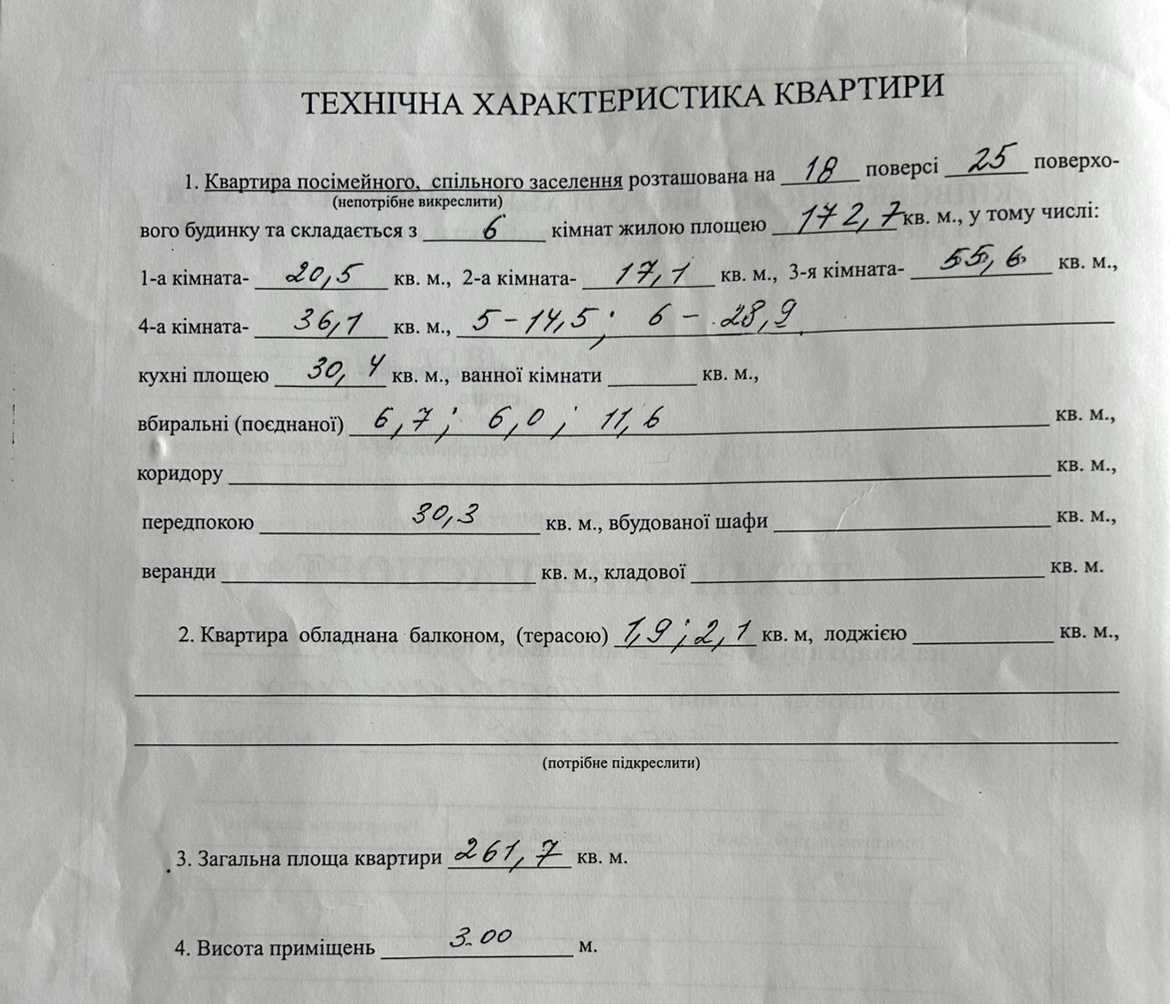 ТЕХНІЧНА ХАРАКТЕРИСТИКА КВАРТИРИ
1. Квартира посімейного, спільного заселення розташована на 18 поверсі 25 поверхо-
(непотрібне викреслити)
вого будинку та складається з 6 кімнат жилою площею 172,7 кв. м., у тому числі:
1-а кімната- 20,5 кв. м., 2-а кімната- 17,1 кв. м., 3-я кімната- 55,6 кв. м.,
4-а кімната- 36,1 кв. м., 5 - 14,5; 6 - 28,9
кухні площею 30,4 кв. м., ванної кімнати кв. м.,
вбиральні (поєднаної) 6,7; 6,0; 11,6 кв. м.,
коридору кв. м.,
передпокою 30,3 кв. м., вбудованої шафи кв. м.,
веранди кв. м., кладової кв. м.
2. Квартира обладнана балконом, (терасою) 1,9; 2,1 кв. м, лоджією кв. м.,
(потрібне підкреслити)
3. Загальна площа квартири 261,7 кв. м.
4. Висота приміщень 3.00 м.